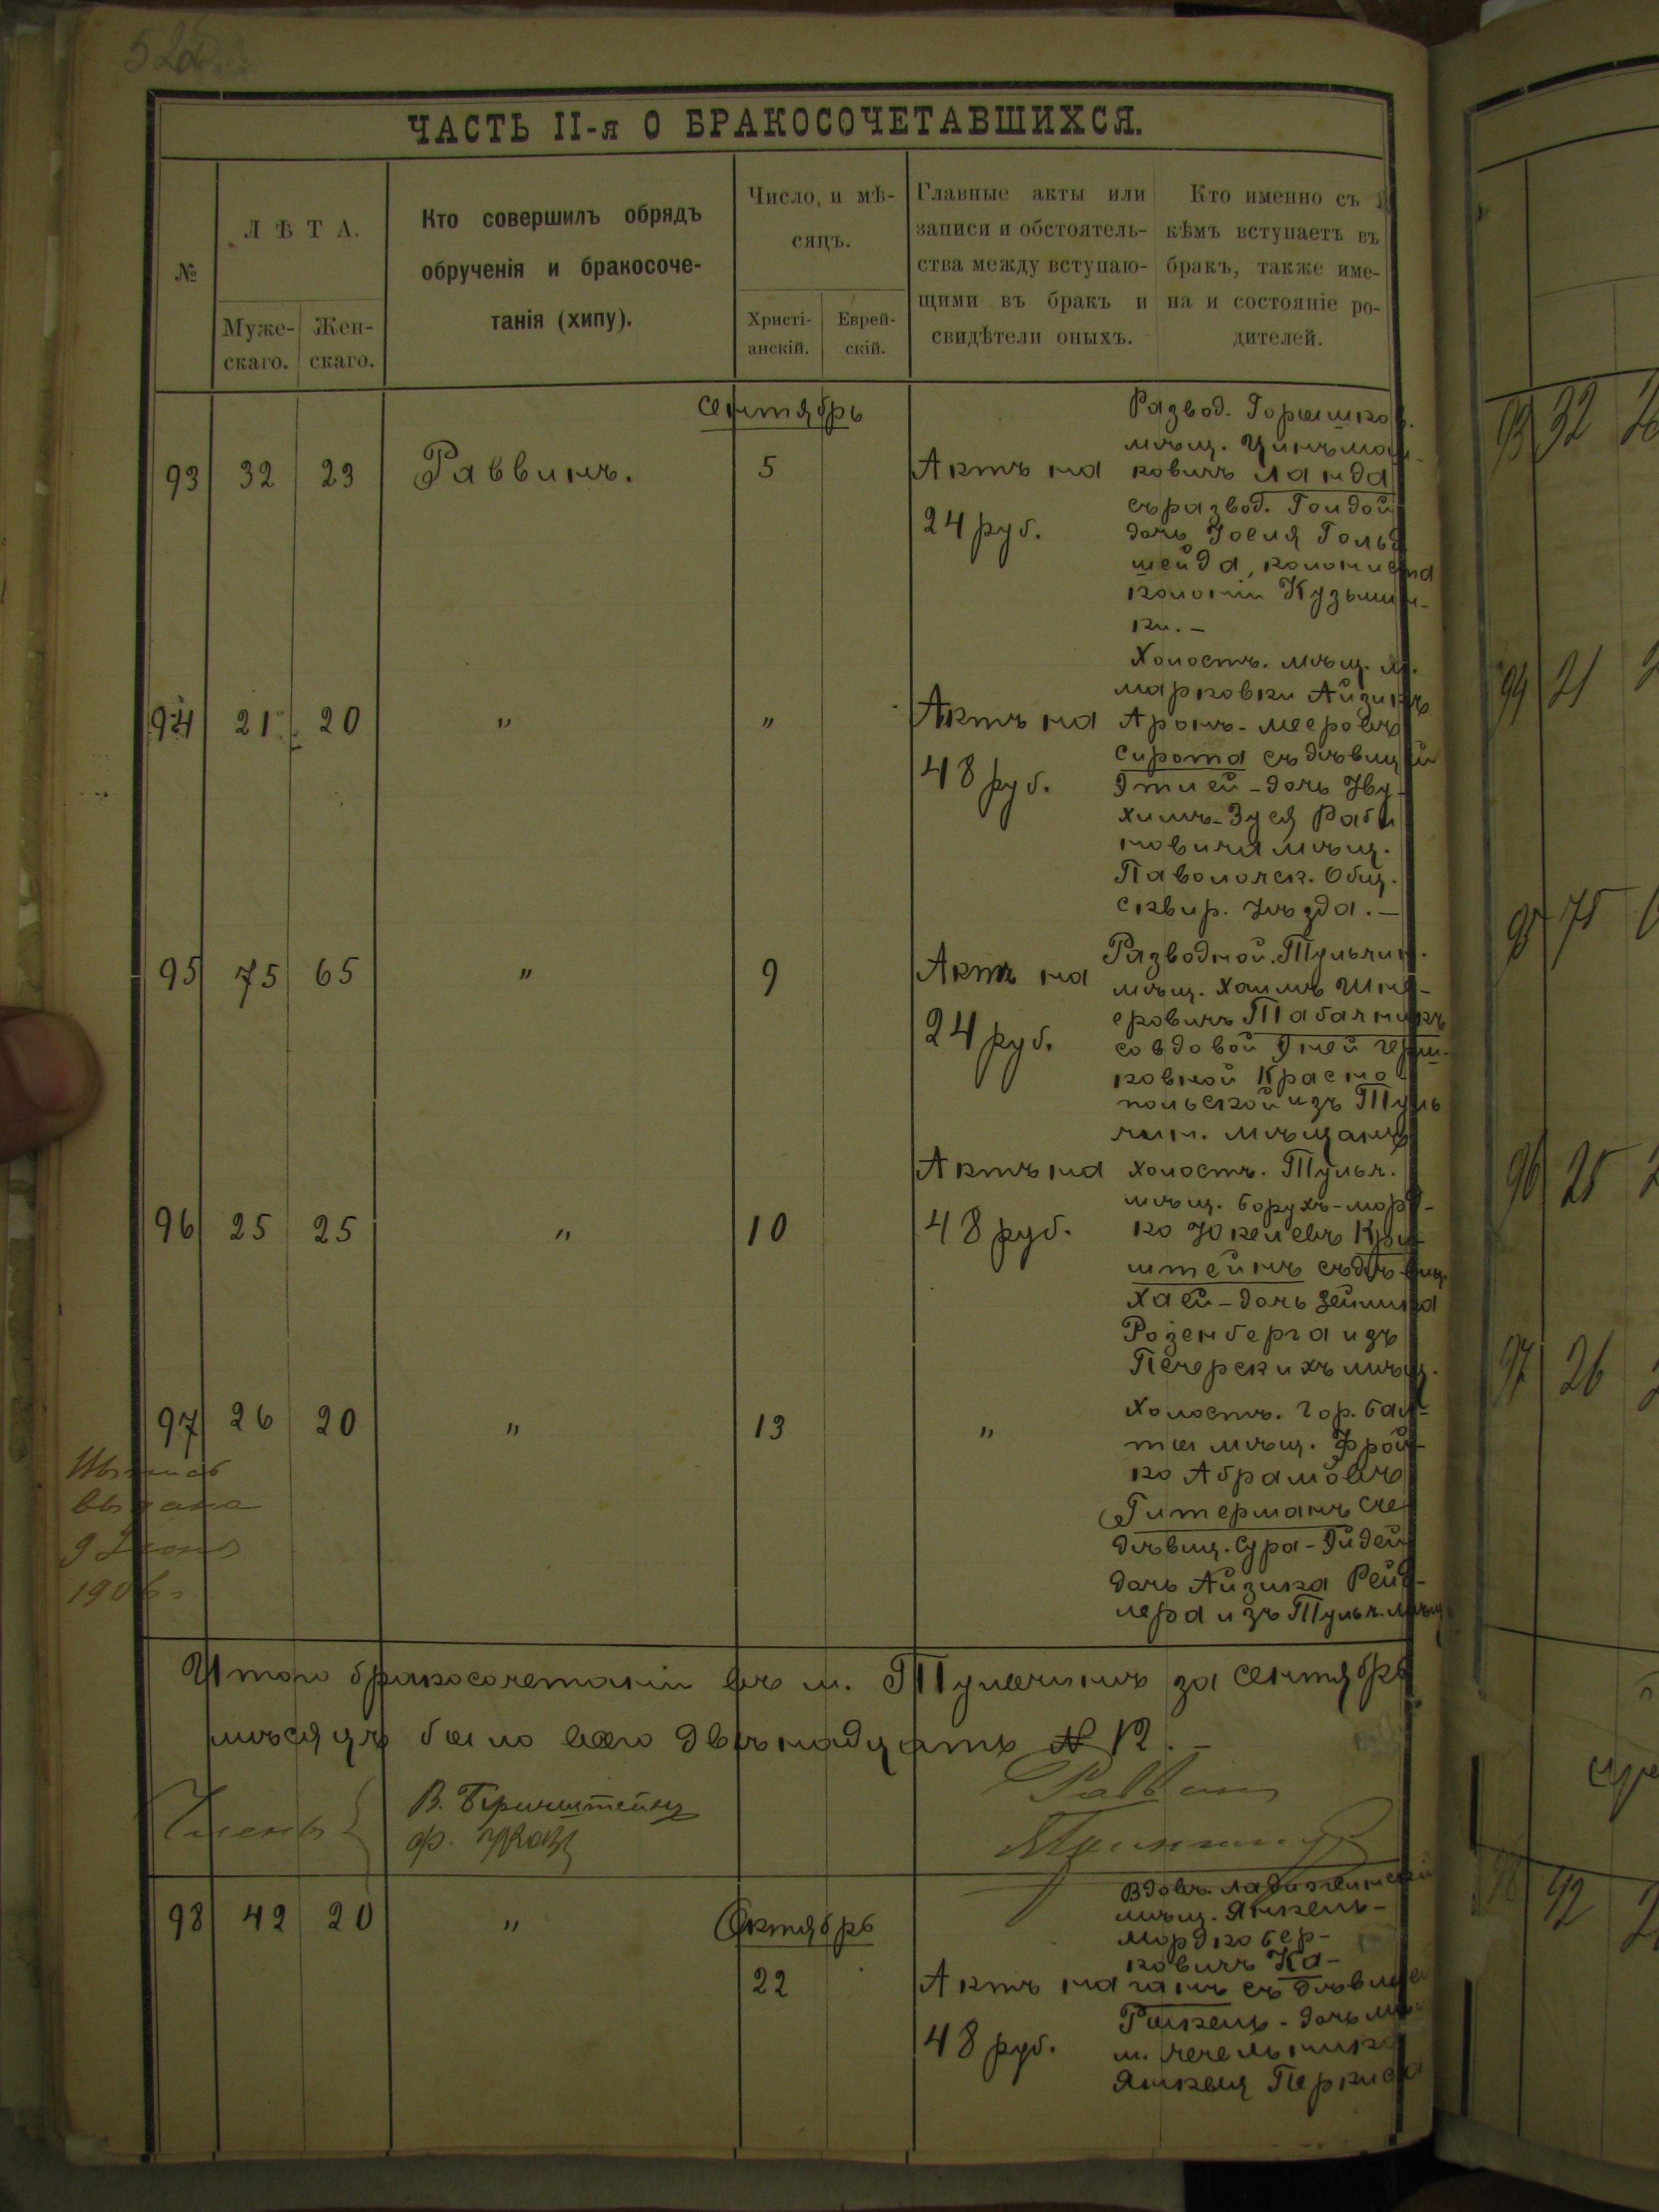 ЧАСТЬ II-я О БРАКОСОЧЕТАВШИХСЯ.
№
ЛѢТА.
Муже-
скаго.
Жен-
скаго.
Кто совершилъ обрядъ
обрученія и бракосоче-
танія (хипу).
Число, и мѣ-
сяцъ.
Христі-
анскій.
Еврей-
скій.
Главные акты или
записи и обстоятель-
ства между вступаю-
щими въ бракъ и
свидѣтели оныхъ.
Кто именно съ
кѣмъ вступаетъ въ
бракъ, также име-
на и состояніе ро-
дителей.
Сентябрь
93 32 23 Раввинъ. 5
Актъ на
24 руб.
Развод. Горышков.
мѣщ.
ковичъ Ланда
съ развод. Гольдой
дочь Іоеля Гольд
шейда, колониста
колоніи Кузьмин-
ки.—
94 21 20 " "
Актъ на
48 руб.
Холостъ. мѣщ. м.
Марковки Айзикъ
Аронъ-Мееровъ
Сирота съ дѣвицей
Этлей-дочь
химъ-Зуся Раби
новича мѣщ.
Паволочск. Общ.
Сквир. уѣзда.—
95 75 65 " 9
Актъ на
24 руб.
Разводной. Тульчин.
мѣщ. Хаимъ Шне-
еровичъ Табачникъ
со вдовой Эней Герш-
ковной Красно-
польской изъ Туль
чин. мѣщанъ
96 25 25 " 10
Актъ на
48 руб.
Холостъ. Тульч.
мѣщ. Борухъ-Морд-
ко Юкелевъ
штейнъ съ дѣвиц.
Хаей-дочь Зейлика
Розенберга изъ
Печерскихъ мѣщ.
97 26 20 " 13 "
Холостъ. гор. Бал-
ты мѣщ. Фрой-
ко Абрамовъ
Гитерманъ съ
дѣвиц. Сура-Эйдей
дочь Айзика Рейд-
лера изъ Тульч. мѣщ
выдана
9 Іюня
1906 г.
Итого бракосочетаній въ м. Тульчинѣ за Сентябрь
мѣсяцъ было всего двѣнадцать № 12.—
Члены
В. Бернштейнъ
Раввинъ
98 42 20 " Октябрь
22
Актъ на
48 руб.
Вдовъ. Ладыжинскій
мѣщ. Янкель-
Мордко Бер-
ковичъ Ка-
ганъ съ дѣвицей
Рыкель-дочь мѣ
м. Чечельника
Янкеля
93 32
94 21
95 75
96 25
97 26
98 42